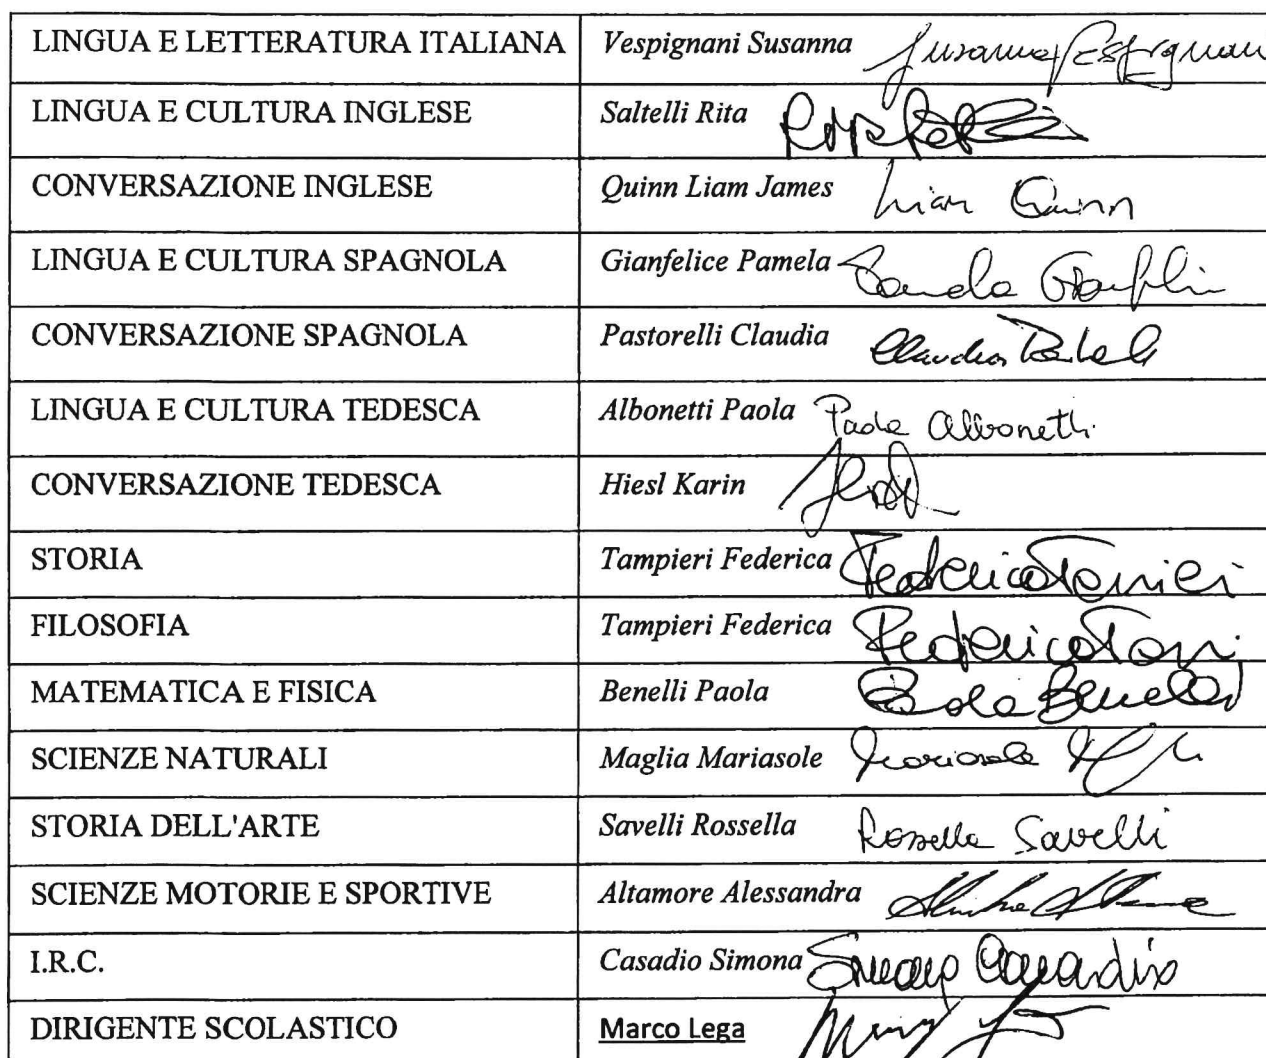 LINGUA E LETTERATURA ITALIANA Vespignani Susanna Susanna Vespignani
LINGUA E CULTURA INGLESE Saltelli Rita
CONVERSAZIONE INGLESE Quinn Liam James Liam Quinn
LINGUA E CULTURA SPAGNOLA Gianfelice Pamela
CONVERSAZIONE SPAGNOLA Pastorelli Claudia Claudia
LINGUA E CULTURA TEDESCA Albonetti Paola Paola Albonetti
CONVERSAZIONE TEDESCA Hiesl Karin
STORIA Tampieri Federica Federica
FILOSOFIA Tampieri Federica Federica
MATEMATICA E FISICA Benelli Paola Paola Benelli
SCIENZE NATURALI Maglia Mariasole Mariasole
STORIA DELL'ARTE Savelli Rossella Rossella Savelli
SCIENZE MOTORIE E SPORTIVE Altamore Alessandra
I.R.C. Casadio Simona Simona Casadio
DIRIGENTE SCOLASTICO Marco Lega